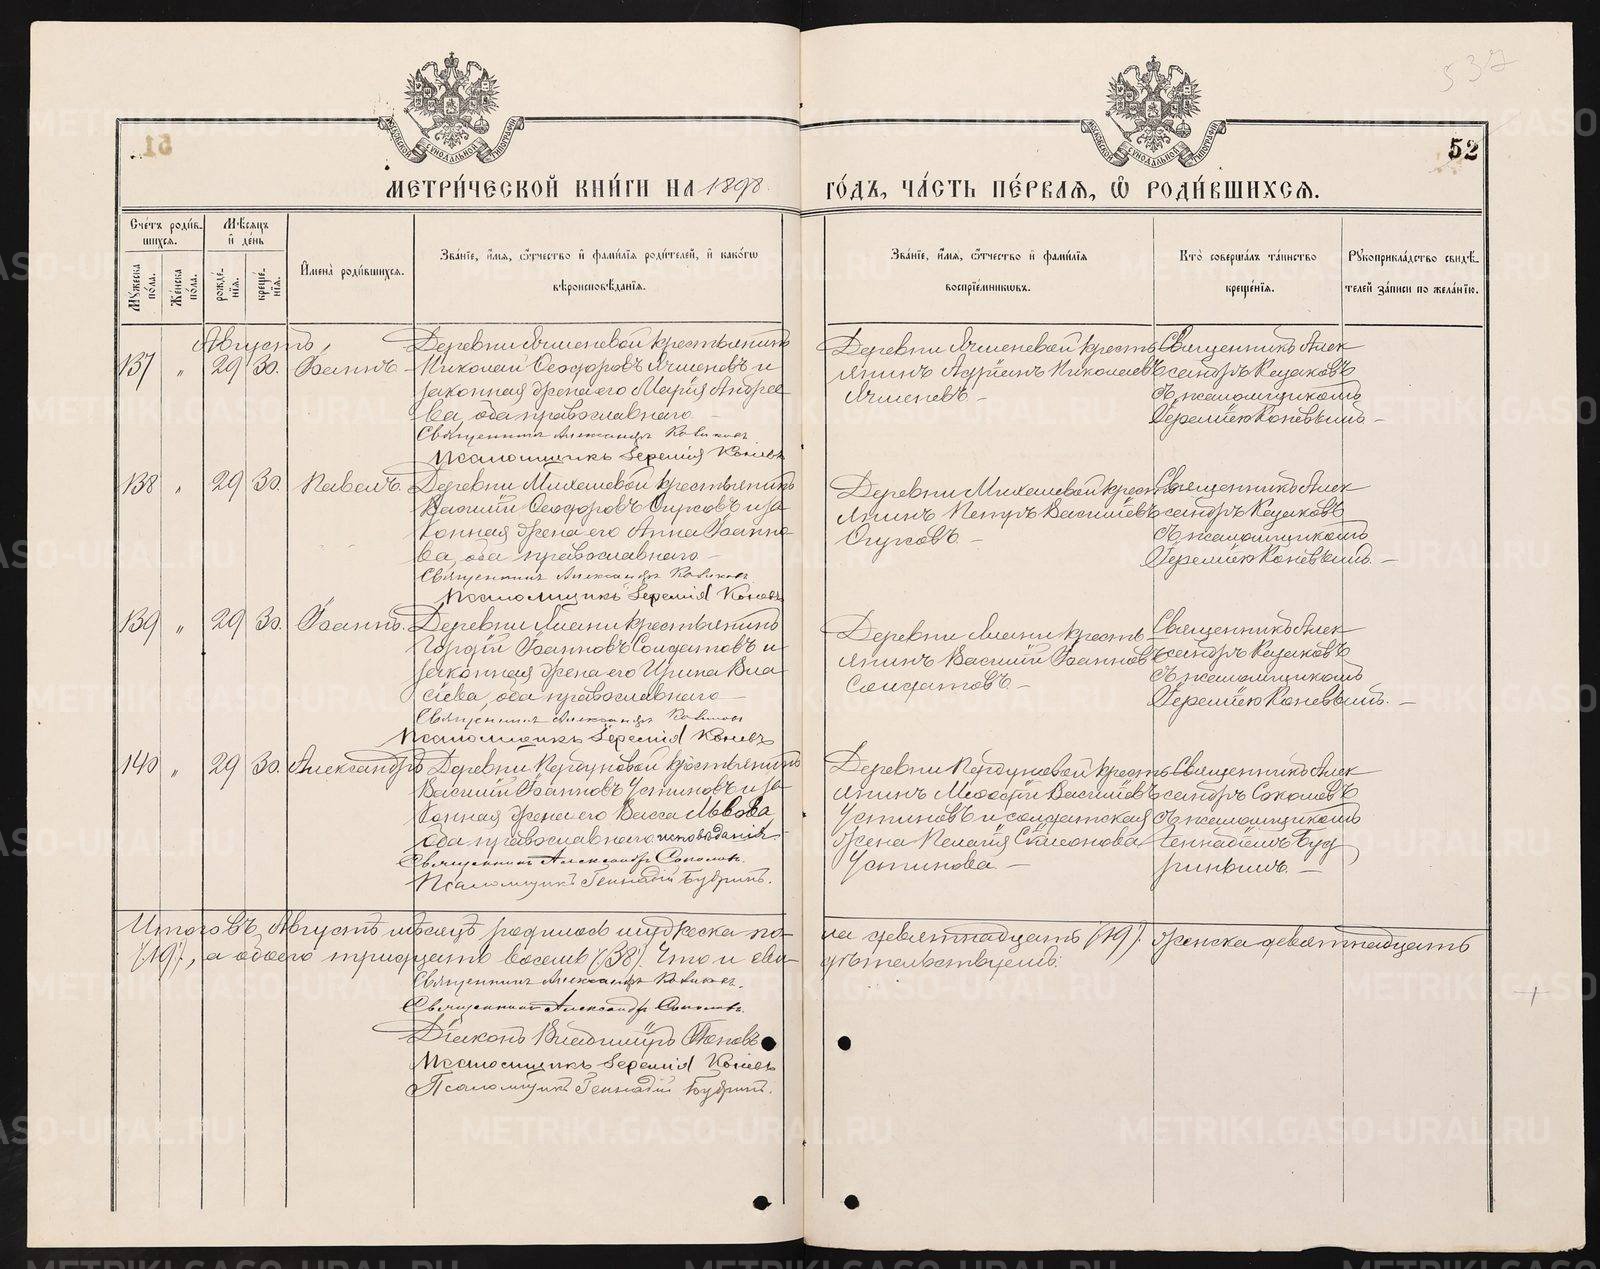 537
51
52
МОСКОВСКОЙ СѴНОДАЛЬНОЙ ТИПОГРАФІИ
МОСКОВСКОЙ СѴНОДАЛЬНОЙ ТИПОГРАФІИ
МЕТРИ́ЧЕСКОЙ КНИ́ГИ НА 1898
ГО́ДЪ, ЧА́СТЬ ПЕ́РВАЯ, Ѽ РОДИ́ВШИХСЯ.
Сче́тъ роди́в-
шихся.
Мѣ́сяцъ
и҆ де́нь
Мꙋ́жеска
по́ла.
Же́нска
по́ла.
рожде́-
нїя.
креще́-
нїя.
И҆мена̀ роди́вшихся.
Зва́нїе, и҆́мя, ѻ҆́тчество и҆ фами́лїя роди́телей, и҆ како́гѡ
вѣроисповѣ́данїя.
Зва́нїе, и҆́мя, ѻ҆́тчество и҆ фами́лїя
воспрїе́мникѡвъ.
Кто̀ соверша́лъ та́инство
креще́нїя.
Рꙋкоприкла́дство свидѣ́-
телей за́писи по жела́нїю.
Августъ,
137 " 29 30. Іоаннъ.
Деревни Ячменевой крестьянинъ
Николай Ѳеодоровъ Ячменевъ и
законная жена его Марія Андрее-
ва, оба православнаго –
Священникъ Александръ
Псаломщикъ Іеремія Коневъ
Деревни Ячменевой кресть-
янинъ Адріанъ Николаевъ
Ячменевъ –
Священникъ Алек-
сандръ Казаковъ
съ псаломщикомъ
Іереміею Коневымъ –
138 " 29 30. Павелъ.
Деревни Михалевой крестьянинъ
Василій Ѳеодоровъ и за-
конная жена его Анна Іоанно-
ва, оба православнаго –
Священникъ Александръ
Псаломщикъ Іеремія Коневъ
Деревни Михалевой кресть-
янинъ Петръ Васильевъ
Священникъ Алек-
сандръ Казаковъ
съ псаломщикомъ
Іереміею Коневымъ. –
139 " 29 30. Іоаннъ.
Деревни крестьянинъ
Гордій Іоанновъ Солдатовъ и
законная жена его Ирина Вла-
сіева, оба православнаго –
Священникъ Александръ
Псаломщикъ Іеремія Коневъ
Деревни кресть-
янинъ Василій Іоанновъ
Солдатовъ –
Священникъ Алек-
сандръ Казаковъ
съ псаломщикомъ
Іереміею Коневымъ. –
140 " 29 30. Александръ
Деревни крестьянинъ
Василій Іоанновъ Устиновъ и за-
конная жена его Васса Львова
оба православнаго исповѣданія –
Священникъ Александръ Соколовъ.
Псаломщикъ Геннадій Будринъ.
Деревни кресть-
янинъ Васильевъ
Устиновъ и солдатская
жена Пелагія Симеонова
Устинова. –
Священникъ Алек-
сандръ Соколовъ
съ псаломщикомъ
Геннадіемъ Буд-
ринымъ. –
Итого въ Августѣ мѣсяцѣ родилось мужеска по-
ла девятнадцать (19), женска девятнадцать
(19), а обоего тридцать восемь (38). Что и сви-
дѣтельствуемъ:
Священникъ Александръ
Священникъ Александръ Соколовъ.
Діаконъ Владиміръ Поповъ
Псаломщикъ Іеремія Коневъ
Псаломщикъ Геннадій Будринъ.
METRIKI.GASO-URAL.RU